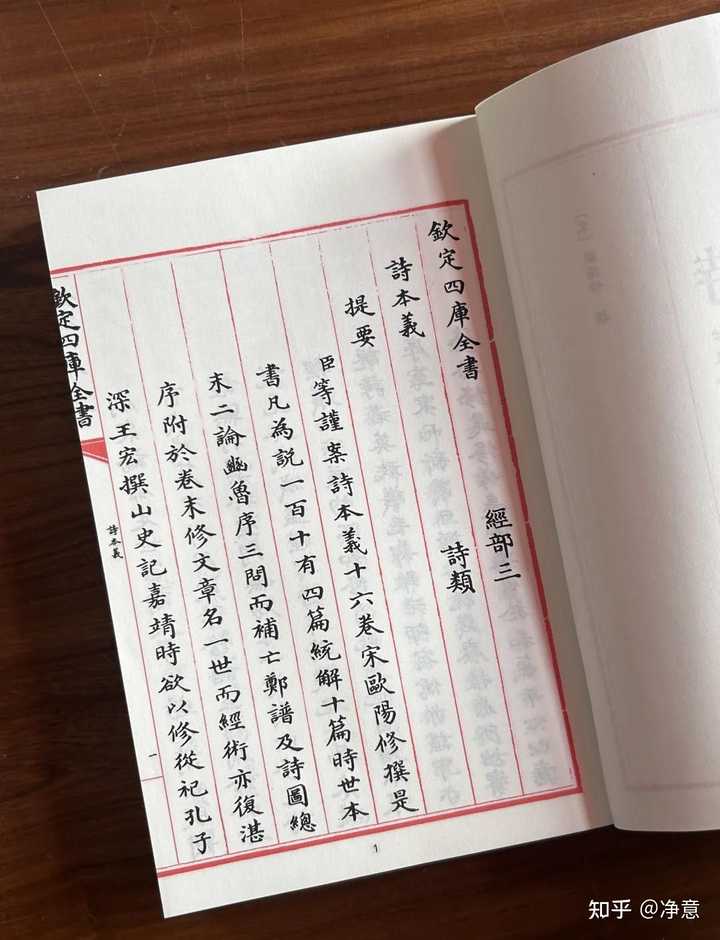 欽定四庫全書
經部三
詩本義
詩類
提要
臣等謹案詩本義十六卷宋歐陽修撰是
書凡為說一百十有四篇統解十篇時世本
末二論豳魯序三問而補亡鄭譜及詩圖總
序附於卷末修文章名一世而經術亦復湛
深王宏撰山史記嘉靖時欲以修從祀孔子
欽定四庫全書
詩本義
一
1
知乎 @净意